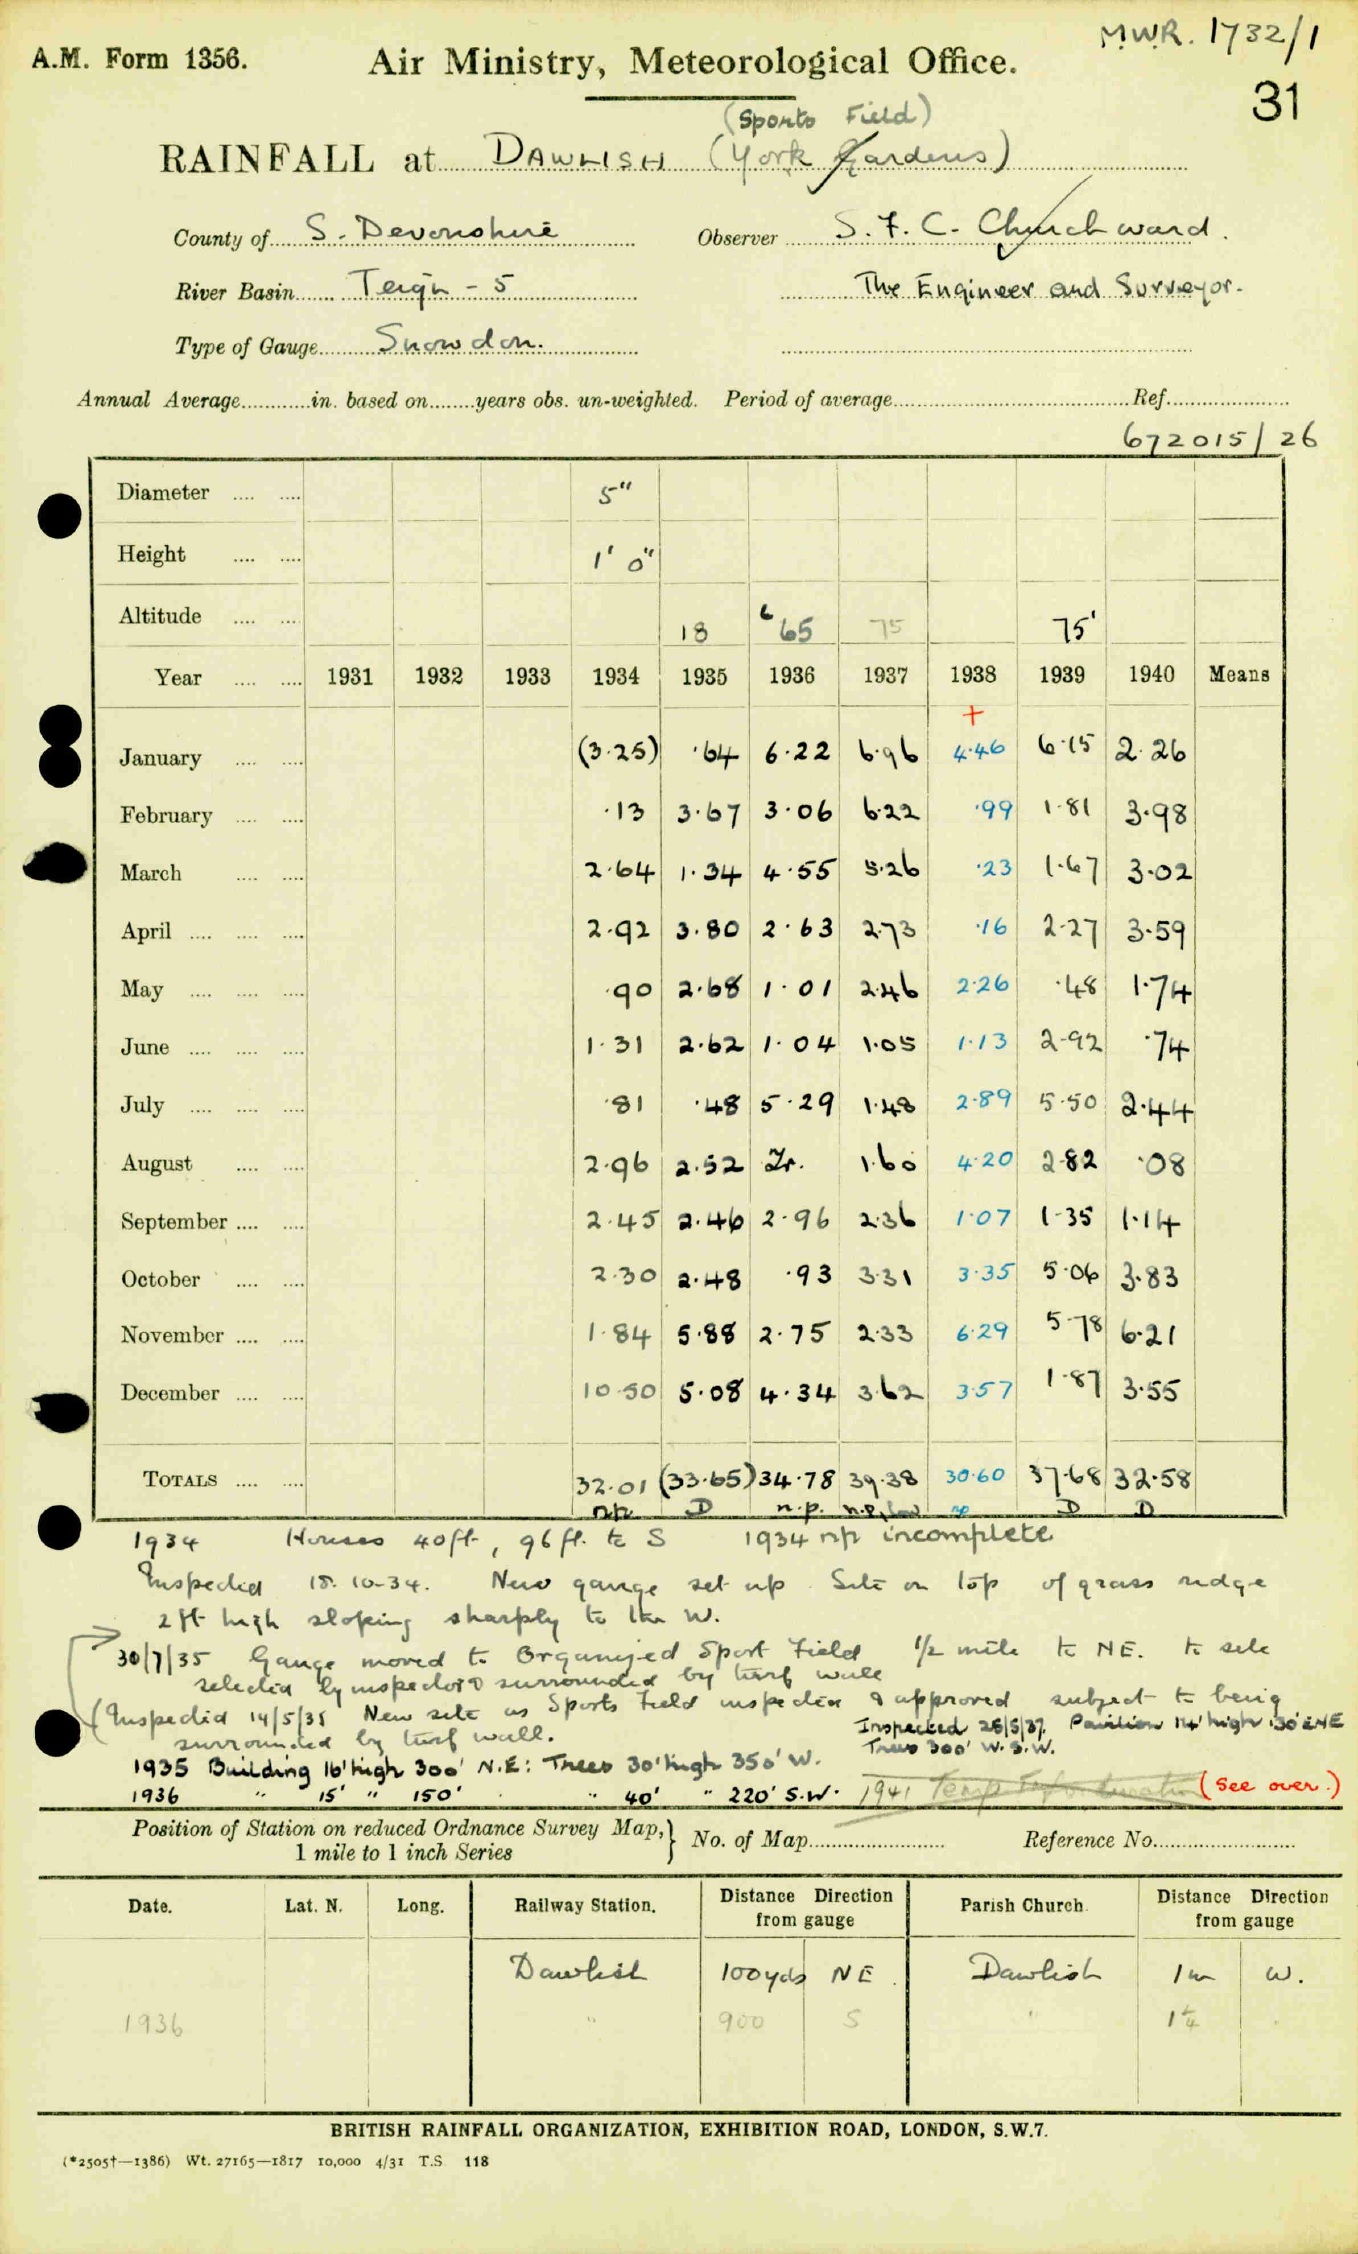 MWR. 1732/1
A.M. Form 1356. Air Ministry, Meteorological Office.
31
(Sports Field)
RAINFALL at DAWLISH (York Gardens)
County of S. Devonshire Observer S. F. C. Churchward.
River Basin Teign - 5 The Engineer and Surveyor.
Type of Gauge Snowdon.
Annual Average in. based on years obs. un-weighted. Period of average Ref.
672015/26
Diameter 5"
Height 1' 0"
Altitude 18 65 75 75'
Year 1931 1932 1933 1934 1935 1936 1937 1938 1939 1940 Means
+
January (3.25) .64 6.22 6.96 4.46 6.15 2.26
February .13 3.67 3.06 6.22 .99 1.81 3.98
March 2.64 1.34 4.55 5.26 .23 1.67 3.02
April 2.92 3.80 2.63 2.73 .16 2.27 3.59
May .90 2.68 1.01 2.46 2.26 .48 1.74
June 1.31 2.62 1.04 1.05 1.13 2.92 .74
July .81 .48 5.29 1.48 2.89 5.50 2.44
August 2.96 2.52 Tr. 1.60 4.20 2.82 .08
September 2.45 2.46 2.96 2.36 1.07 1.35 1.14
October 2.30 2.48 .93 3.31 3.35 5.06 3.83
November 1.84 5.88 2.75 2.33 6.29 5.78 6.21
December 10.50 5.08 4.34 3.62 3.57 1.87 3.55
TOTALS 32.01 (33.65) 34.78 39.38 30.60 37.68 32.58
np D n.p. n.p. np D D
1934 Houses 40ft, 96ft. to S 1934 np incomplete
Inspected 18.10.34. New gauge set up. Site on top of grass ridge
2ft high sloping sharply to the W.
30/7/35 Gauge moved to Organized Sport Field 1/2 mile to NE. to site
selected by inspector & surrounded by turf wall
(Inspected 14/5/35 New site in Sports Field inspected & approved subject to being
surrounded by turf wall.
Inspected 28/5/37. Pavilion 14' high 130' ENE
Trees 300' W.S.W.
1935 Building 16' high 300' N.E: Trees 30' high 350' W.
1936 " 15' " 150' " 40' " 220' S.W. 1941 Temp (See over.)
Position of Station on reduced Ordnance Survey Map, } No. of Map Reference No.
1 mile to 1 inch Series
Date. Lat. N. Long. Railway Station. Distance Direction from gauge Parish Church. Distance Direction from gauge
Dawlish 100yds NE. Dawlish 1m W.
1936 " 900 S " 1¼
BRITISH RAINFALL ORGANIZATION, EXHIBITION ROAD, LONDON, S.W.7.
(*2505†—1386) Wt. 27165—1817 10,000 4/31 T.S 118